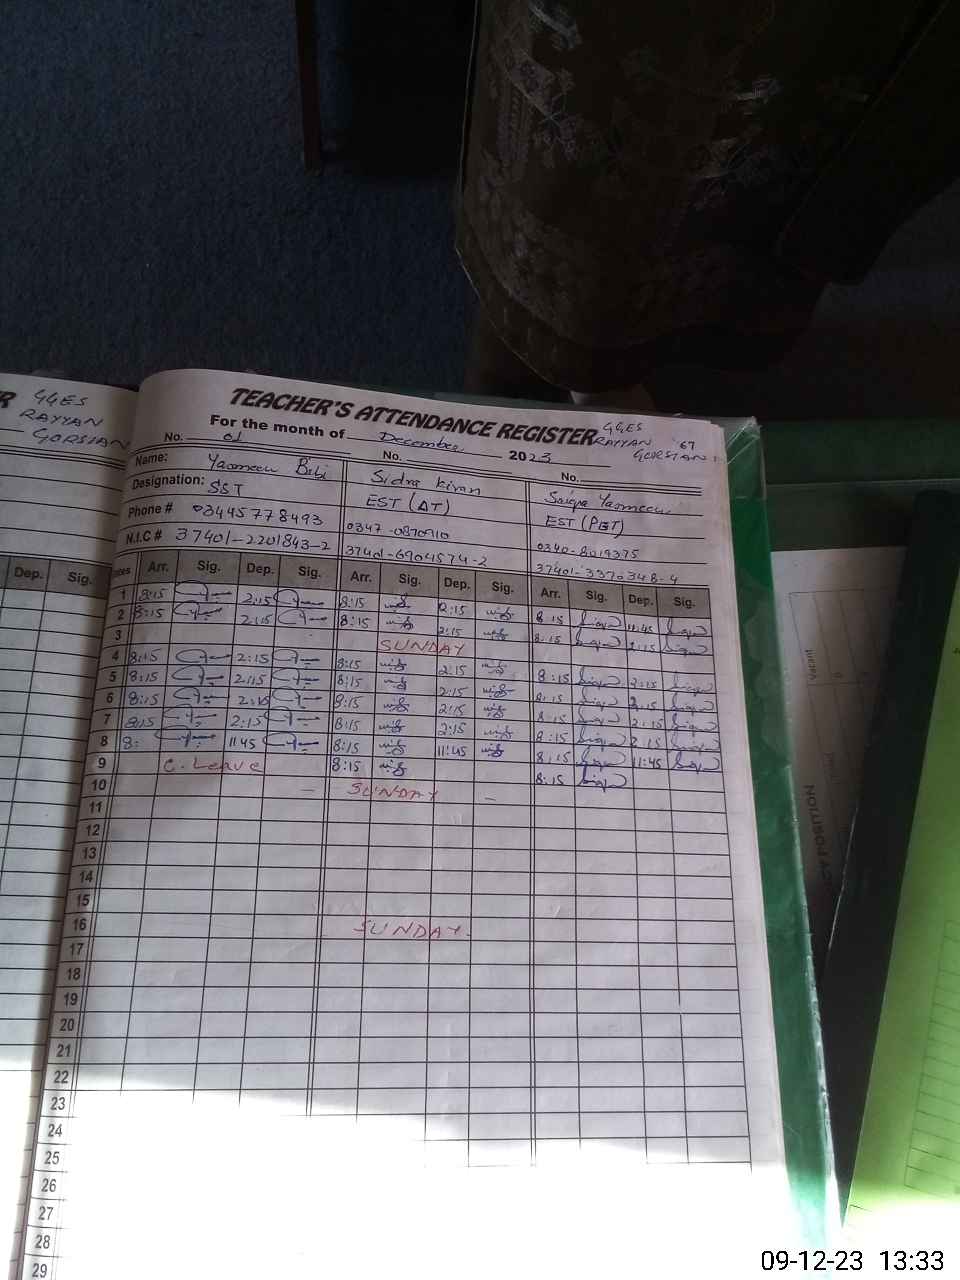 R GGES
RAYYAN
GORSIAN
TEACHER'S ATTENDANCE REGISTER GGES
RAYYAN 67
GORSIAN
For the month of December 2023
No. 01 No. No.
Name: Yasmeen Bibi Sidra Kiran Saiqa Yasmeen
Designation: SST EST (DT) EST (PET)
Phone # 03445778493 0347-0870910 0340-8019375
N.I.C # 37401-2201843-2 37401-6904574-2 37401-3370348-4
Dep. Sig. Dates Arr. Sig. Dep. Sig. Arr. Sig. Dep. Sig. Arr. Sig. Dep. Sig.
1 8:15 2:15 8:15 12:15 8:15 11:45
2 8:15 2:15 8:15 2:15 8:15 2:15
3 SUNDAY
4 8:15 2:15 8:15 2:15 8:15 2:15
5 8:15 2:15 8:15 2:15 8:15 2:15
6 8:15 2:15 8:15 2:15 8:15 2:15
7 8:15 2:15 8:15 2:15 8:15 2:15
8 8: 11:45 8:15 11:45 8:15 11:45
9 C. Leave 8:15 8:15
10 — SUNDAY —
11
12
13
14
15
16 SUNDAY
17
18
19
20
21
22
23
24
25
26
27
28
29
Vacant
POSITION
09-12-23 13:33